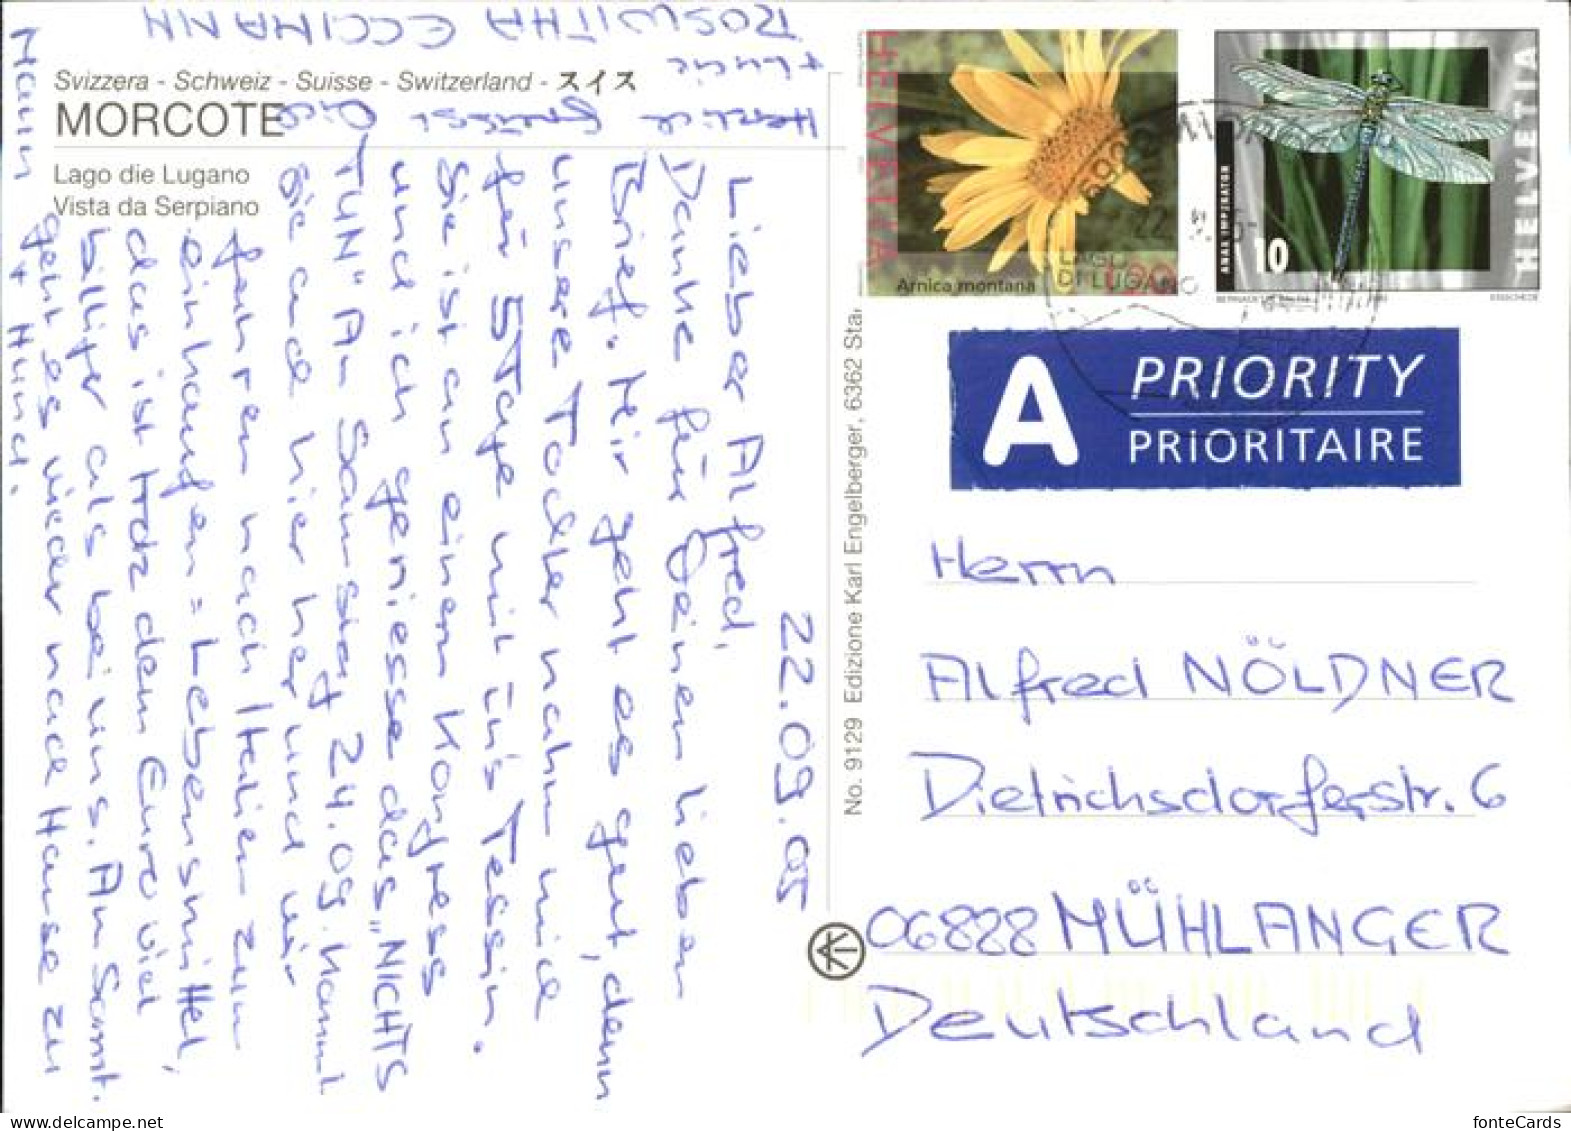 Svizzera - Schweiz - Suisse - Switzerland - スイス
MORCOTE
Lago die Lugano
Vista da Serpiano
22.09.05
Lieber Alfred,
Danke für Deinen lieben
Brief. Mir geht es gut, denn
unsere Tochter nahm mich
für 5 Tage mit in's Tessin.
Sie ist an einem Kongress
und ich geniesse das „NICHTS
TUN" Am Samstag 24.09. kommt
Sie auch hier her und wir
fahren nach Italien zum
einkaufen = Lebensmittel,
das ist trotz dem Euro viel
billiger als bei uns. Am Sonnt.
geht es wieder nach Hause zu
Mann + Hund.
Herzliche Grüsse
ROSWITHA ECCIMANN
HELVETIA
Arnica montana
HELVETIA
ANAX IMPERATOR
10
LAGO
DI LUGANO
A
PRIORITY
PRIORITAIRE
No. 9129 Edizione Karl Engelberger, 6362 Sta
Herrn
Alfred NÖLDNER
Dietrichsdorferstr. 6
06828 MÜHLANGER
Deutschland
fonteCards